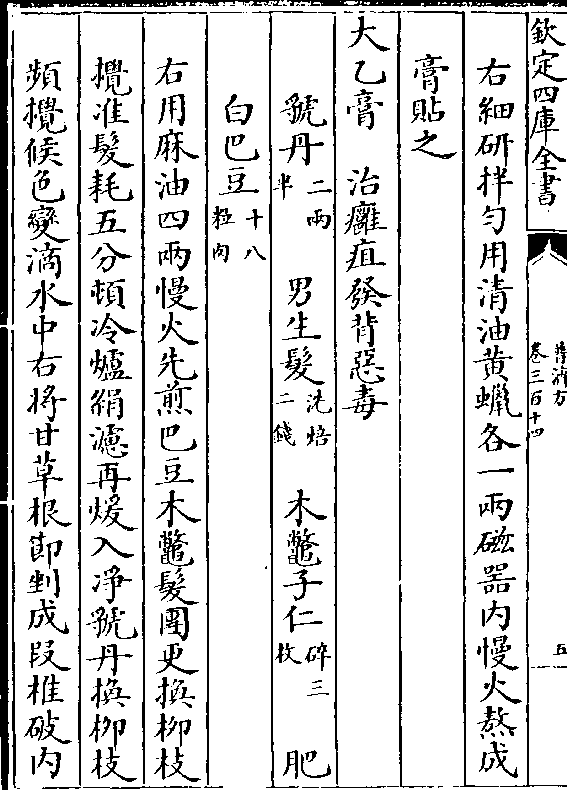 欽定四庫全書
普濟方
卷三百十四
五
右細研拌勻用清油黃蠟各一兩磁器内慢火熬成
膏貼之
大乙膏　治癰疽發背惡毒
號丹二兩半　男生髮洗焙二錢　木鼈子仁碎三枚　肥
白巴豆十八粒肉
右用麻油四兩慢火先煎巴豆木鼈髮團更換柳枝
攪准髮耗五分頓冷爐絹濾再煖入淨號丹換柳枝
頻攪候色變滴水中右將甘草根節剉成段椎破内